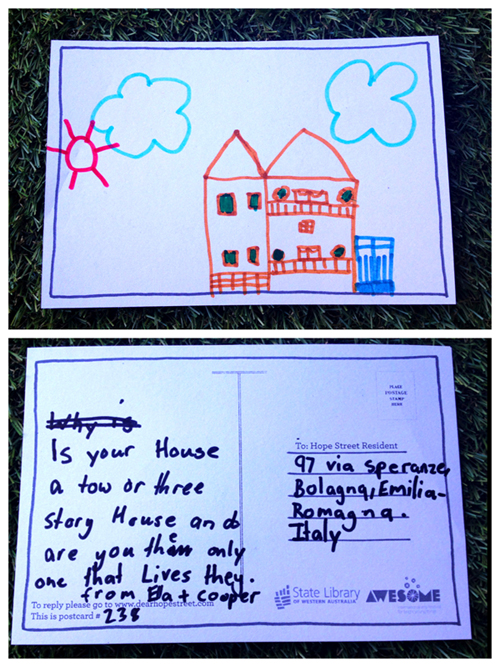 Why is
Is your House
a tow or three
story House and
are you the only
one that Lives they.
from Ela + cooper
To reply please go to www.dearhopestreet.com
This is postcard # 238
PLACE
POSTAGE
STAMP
HERE
To: Hope Street Resident
97 via speranze,
Bolagna, Emilia-
Romagna.
Italy
State Library
OF WESTERN AUSTRALIA
AWESOME